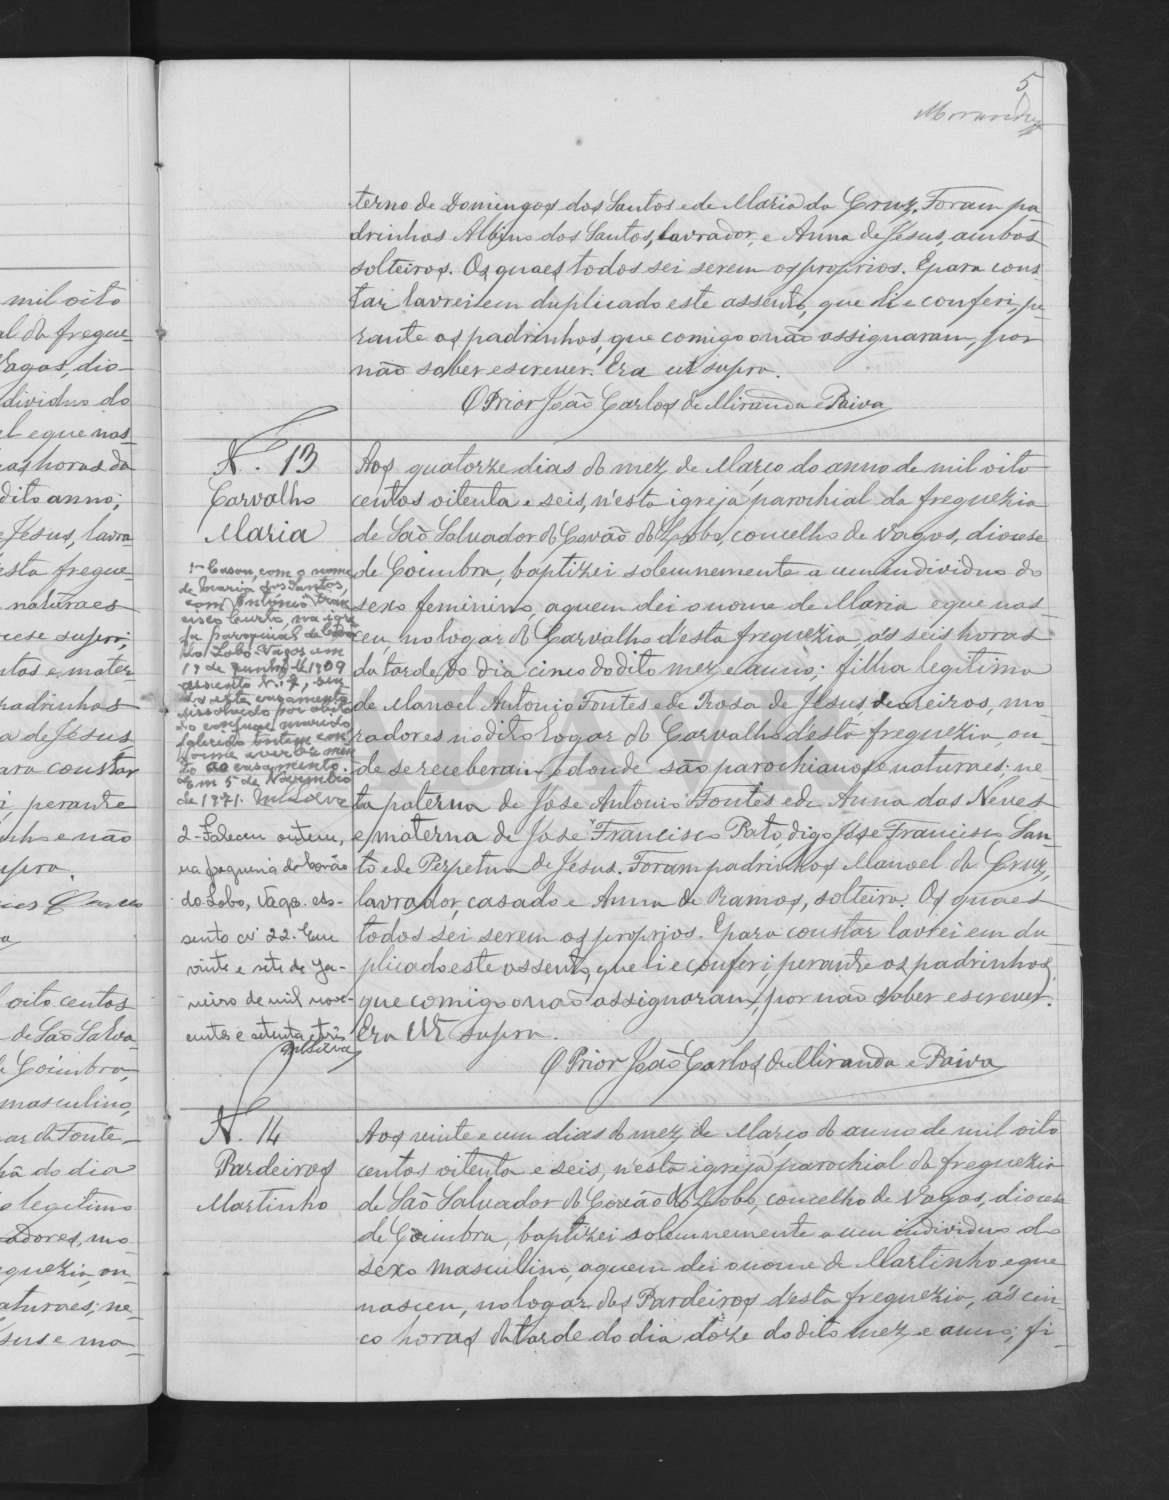 5
Miranda
terno de Domingos dos Santos e de Maria da Cruz. Foram pa-
drinhos Albino dos Santos, lavrador, e Anna de Jesus, ambos
solteiros. Os quaes todos sei serem os proprios. E para cons-
tar lavrei em duplicado este assento, que li e conferi, pe-
rante os padrinhos, que comigo o não assignaram, por
não saber escrever. Era ut supra.
O Prior João Carlos de Miranda e Paiva
N. 13
Carvalho
Maria
1º- Casou, com o nome
de Maria dos Santos,
com António Fran-
cisco Curto, na igre-
ja paroquial de Covão
do Lobo-Vagos em
19 de Junho de 1909
assento N.º 7,
este casamento
dissolvido por óbito
do conjuge marido
falecido ontem con-
forme averbamen-
to ao casamento.
Em 5 de Novembro
de 1971.
2- Faleceu ontem,
na freguesia do Covão
do Lobo, Vagos. As-
sento nº 22. Em
vinte e sete de Ja-
neiro de mil nove-
centos e setenta e três
Aos quatorze dias do mez de Março do anno de mil oito
centos oitenta e seis, n'esta igreja parochial da freguezia
de São Salvador do Covão do Lobo, concelho de Vagos, diocese
de Coimbra, baptizei solemnemente a um individuo do
sexo feminino, a quem dei o nome de Maria e que nas-
ceu, no logar do Carvalho d'esta freguezia, ás seis horas
da tarde, do dia cinco do dito mez e anno; filha legitima
de Manoel Antonio Fontes e de Rosa de Jesus, mo-
radores no dito logar do Carvalho d'esta freguezia, on-
de se receberam e donde são parochianos e naturaes; ne-
ta paterna de José Antonio Fontes e de Anna das Neves
e materna de José Francisco Rato, digo José Francisco San-
to e de Perpetua de Jesus. Foram padrinhos Manoel da Cruz,
lavrador, casado e Anna de Ramos, solteira. Os quaes
todos sei serem os proprios. E para constar lavrei em du-
plicado este assento, que li e conferi perante os padrinhos,
que comigo o não assignaram, por não saber escrever.
Era Ut supra.
O Prior João Carlos de Miranda e Paiva
N. 14
Pardeiros
Martinho
Aos vinte e um dias do mez de Março do anno de mil oito
centos oitenta e seis, n'esta igreja parochial da freguezia
de São Salvador do Covão do Lobo, concelho de Vagos, diocese
de Coimbra, baptizei solemnemente a um individuo do
sexo masculino, a quem dei o nome de Martinho e que
nasceu, no logar dos Pardeiros d'esta freguezia, ás cin-
co horas da tarde do dia doze do dito mez e anno; fi-